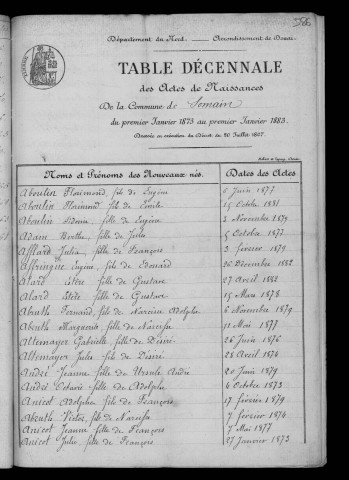 386
Département du Nord. Arrondissement de Douai.
TABLE DÉCENNALE
des Actes de Naissances
De la Commune de Somain
du premier Janvier 1873 au premier Janvier 1883.
Dressée en exécution du Décret du 20 Juillet 1807.
Noms et Prénoms des Nouveaux-nés. Dates des Actes
Aboulin Florimond, fils de Eugène 6 Juin 1877
Aboulin Florimond, fils de Emile 15 Octobre 1881
Aboulin fille de Eugène 2 Novembre 1879
Adam Berthe, fille de Jules 5 Octobre 1877
Affard Julia, fille de François 3 février 1879
Affringue Eugène fils de Edouard 26 Décembre 1882
Alard fille de Gustave 27 Avril 1882
Alard fille de Gustave 15 Mars 1878
Fernand, fils de Narcisse Adolphe 6 Novembre 1879
Marguerite, fille de Narcisse 11 Mai 1877
Altemayer Gabrielle fille de Désiré 26 Juin 1876
Altemayer Jules fils de Désiré 28 Avril 1874
André Jeanne fille de Ursule André 20 Juin 1879
André Octavie fille de Adolphe 4 Octobre 1873
Anicot Adolphe fils de François 17 février 1879
Victor, fils de Narcisse 7 février 1874
Anicot Jeanne fille de François 5 Mai 1877
Anicot Julie, fille de François 27 Janvier 1873